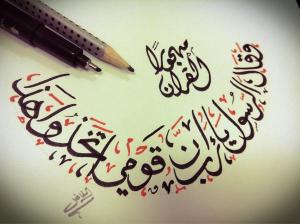 وقال الرسول يا رب إن قومي اتخذوا هذا
القرآن
مهجورا